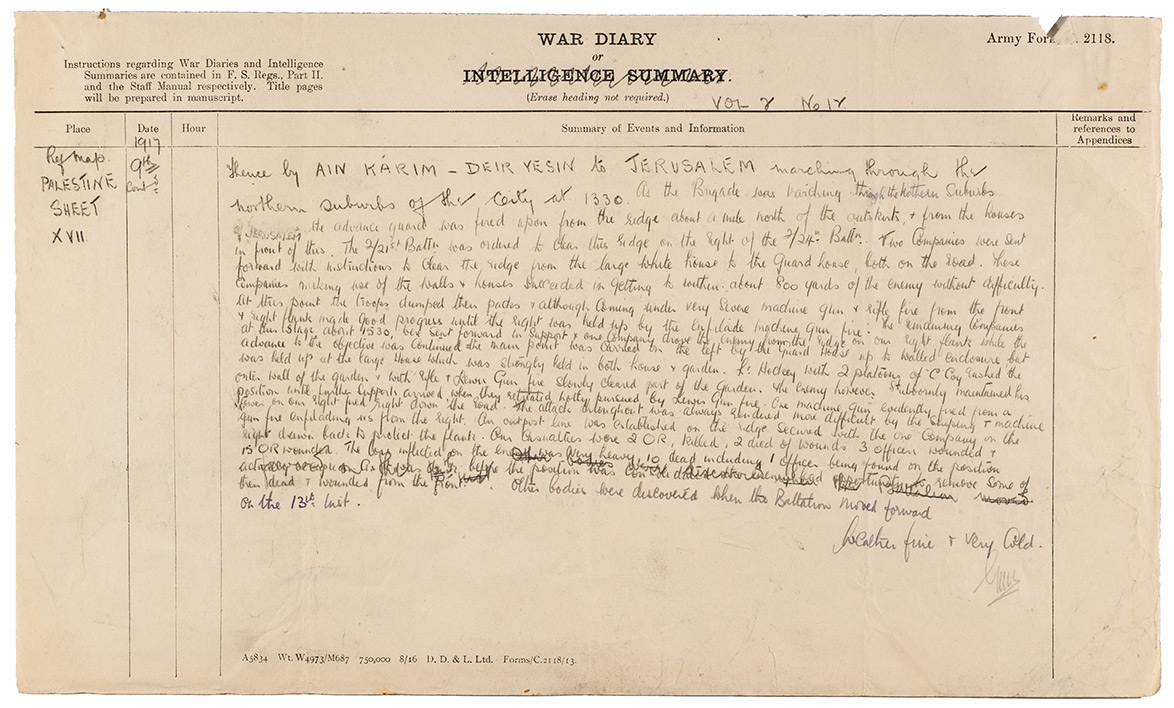 WAR DIARY
or
INTELLIGENCE SUMMARY.
(Erase heading not required.)
Army For . 2118.
Instructions regarding War Diaries and Intelligence
Summaries are contained in F. S. Regs., Part II.
and the Staff Manual respectively. Title pages
will be prepared in manuscript.
VOL 2 No 12
Place
Date
Hour
Summary of Events and Information
Remarks and
references to
Appendices
Ref Map.
PALESTINE
SHEET
XVII
1917
9th
Contd
thence by AIN KÁRIM - DEIR YESIN to JERUSALEM marching through the
northern suburbs of the City at 1330. As the Brigade was marching through the Northern Suburbs
of JERUSALEM the advance guard was fired upon from the ridge about a mile north of the outskirts, & from the houses
in front of this. The 2/21st Battn was ordered to clear this ridge on the right of the 2/24th Battn. Two Companies were sent
forward with instructions to clear the ridge from the large white house to the Guard house, both on the road. These
Companies making use of the walls & houses succeeded in getting to within about 800 yards of the enemy without difficulty.
At this point the troops dumped their packs & although coming under very severe machine gun & rifle fire from the front
& right flank made good progress until the right was held up by the enfilade machine gun fire. The remaining companies
at this stage about 1530, were sent forward in support & one company drove the enemy from the ridge on our right flank while the
advance to the objective was continued. The main point was carried on the left by the Guard House up to walled enclosure but
was held up at the large House which was strongly held in both house & garden. Lt Hockey with 2 platoons of "C" Coy rushed the
outer wall of the garden & with Rifle & Lewis Gun fire slowly cleared part of the garden. The enemy however stubbornly maintained his
position until further supports arrived when they retreated hotly pursued by Lewis Gun fire. One machine Gun evidently fired from a
on our right fired right down the road. The attack throughout was always rendered more difficult by the sniping & machine
gun fire enfilading us from the right. An outpost line was established on the ridge secured with the one Company on the
right drawn back to protect the flank. Our casualties were 2 OR. killed, 2 died of wounds 3 Officers wounded &
15 OR wounded. The loss inflicted on the enemy was very heavy, 10 dead including 1 Officer being found on the position
before the position was consolidated the enemy had opportunity to remove some of
their dead & wounded from the front. Other bodies were discovered when the Battalion moved forward
on the 13th inst.
Weather fine & very Cold.
A5834 Wt. W4973/M687 750,000 8/16 D. D. & L. Ltd. Forms/C.2118/13.